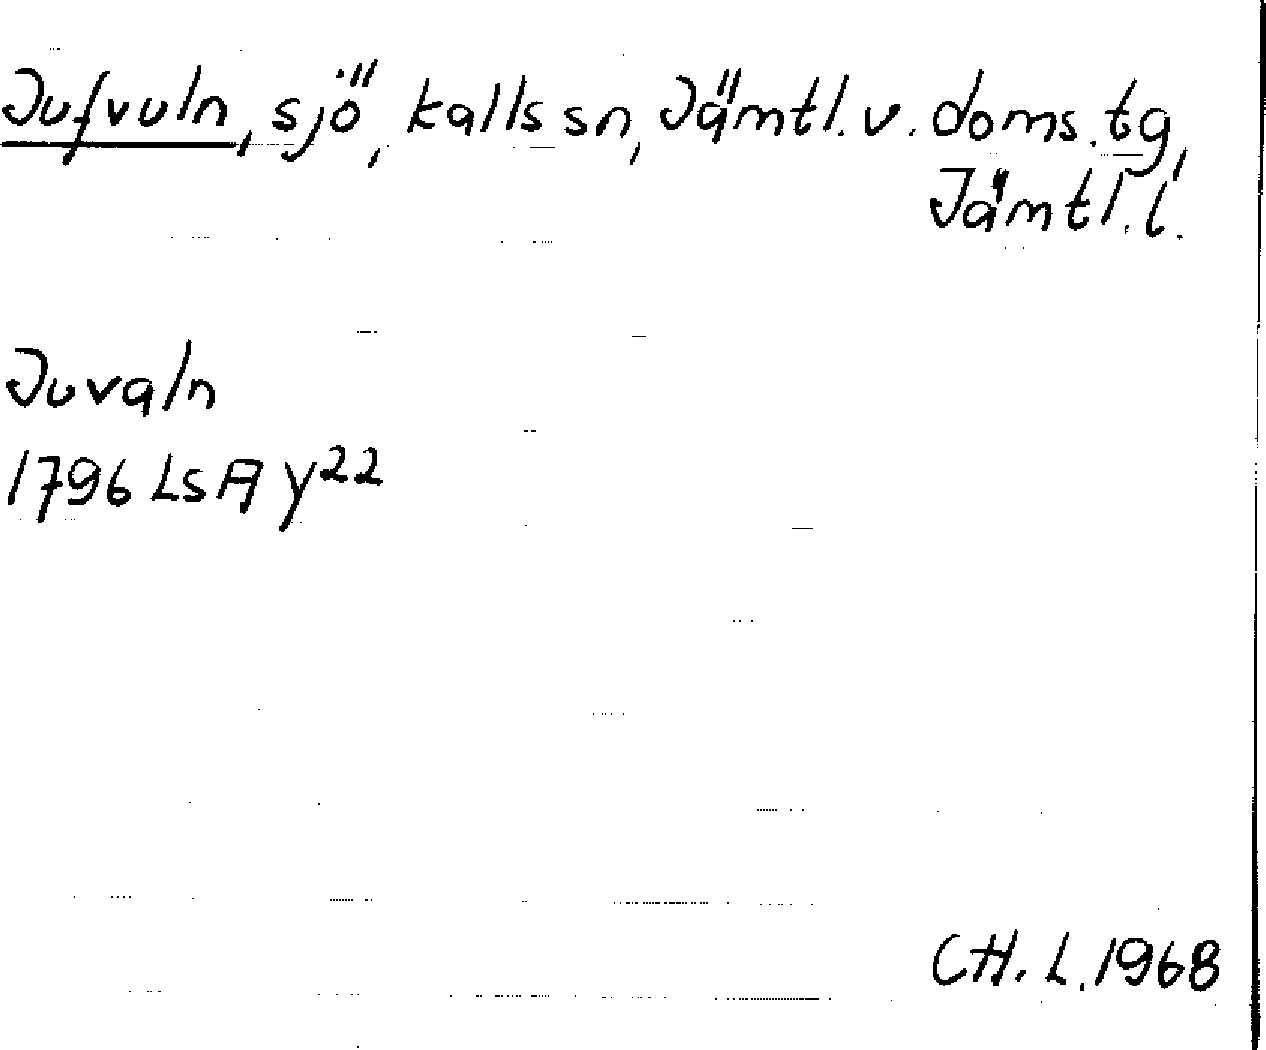 Jufvuln, sjö, Kalls sn, Jämtl. v. doms. tg,
Jämtl. l.
Juvaln
1796 LSA Y22
CH. L. 1968